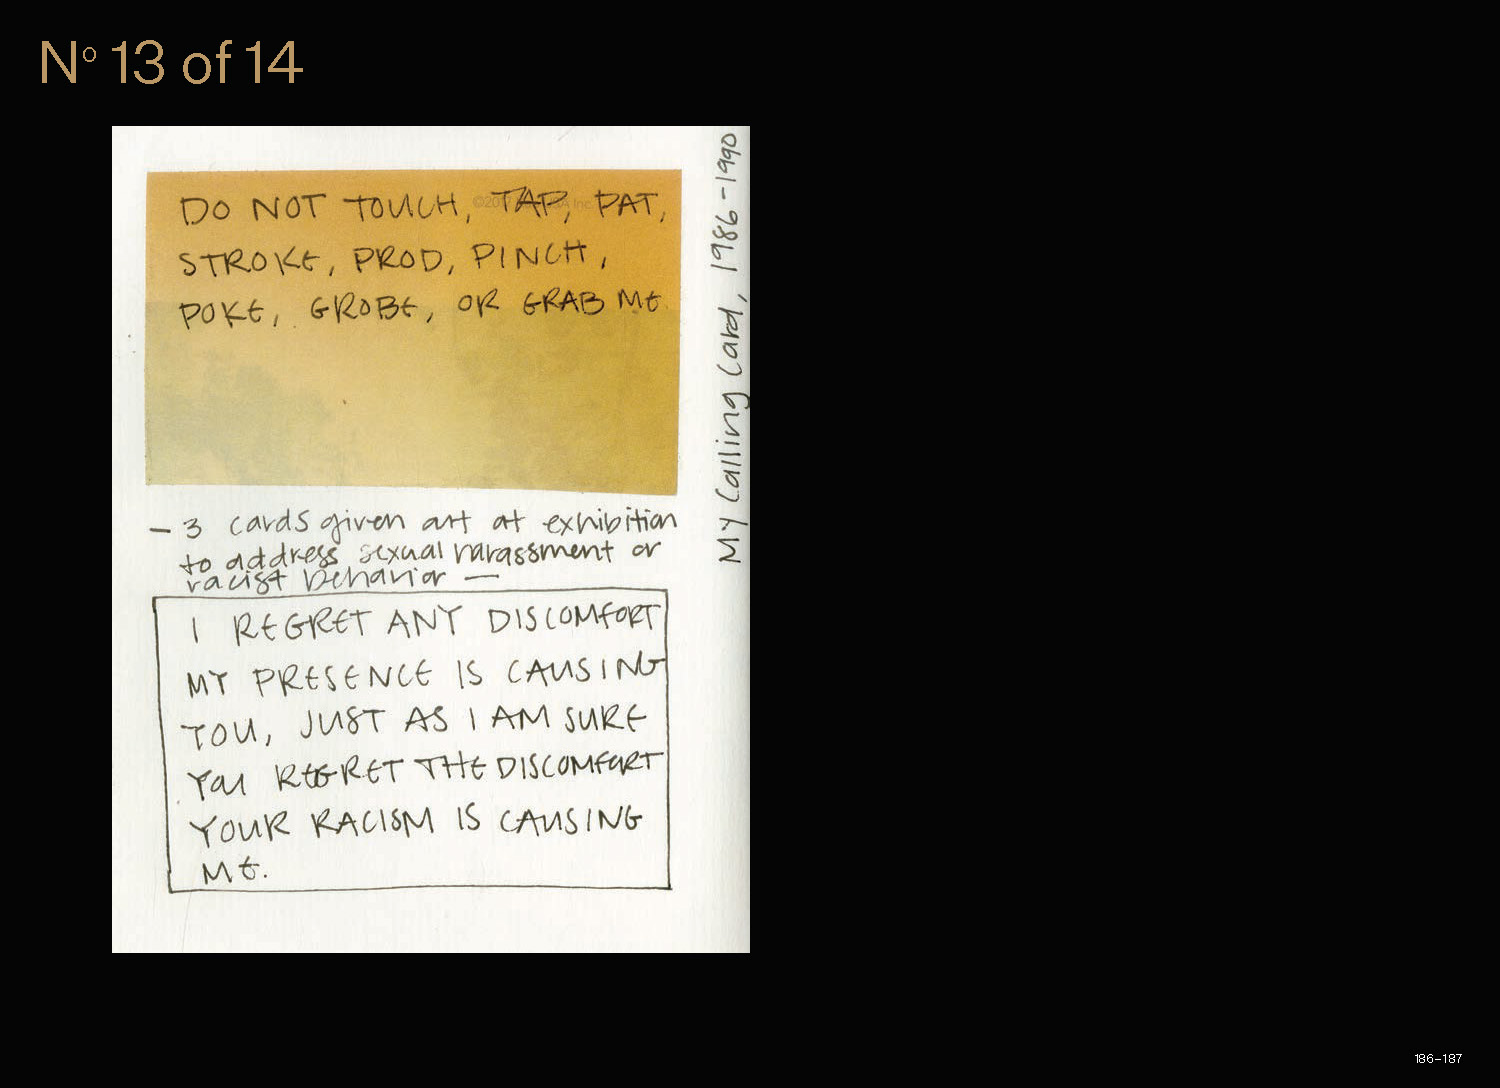 Nº 13 of 14
DO NOT TOUCH, TAP, PAT,
STROKE, PROD, PINCH,
POKE, GROBE, OR GRAB ME
— 3 cards given art at exhibition
to address sexual harassment or
racist behavior —
I REGRET ANY DISCOMFORT
MY PRESENCE IS CAUSING
YOU, JUST AS I AM SURE
YOU REGRET THE DISCOMFORT
YOUR RACISM IS CAUSING
ME.
My Calling Card, 1986-1990
186–187